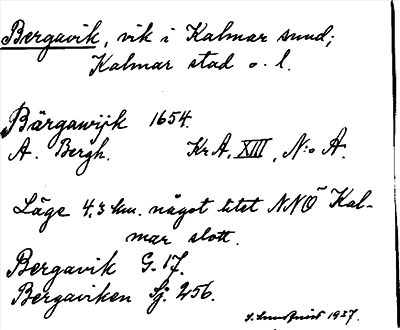 Bergavik, vik i Kalmar sund;
Kalmar stad o. l.
Bärgawijk 1654.
A. Bergh. KrA, XIII, N:o A.
Läge 4,3 km. något litet NNO Kal-
mar slott.
Bergavik G. 17.
Bergaviken Sj. 256.
1937.